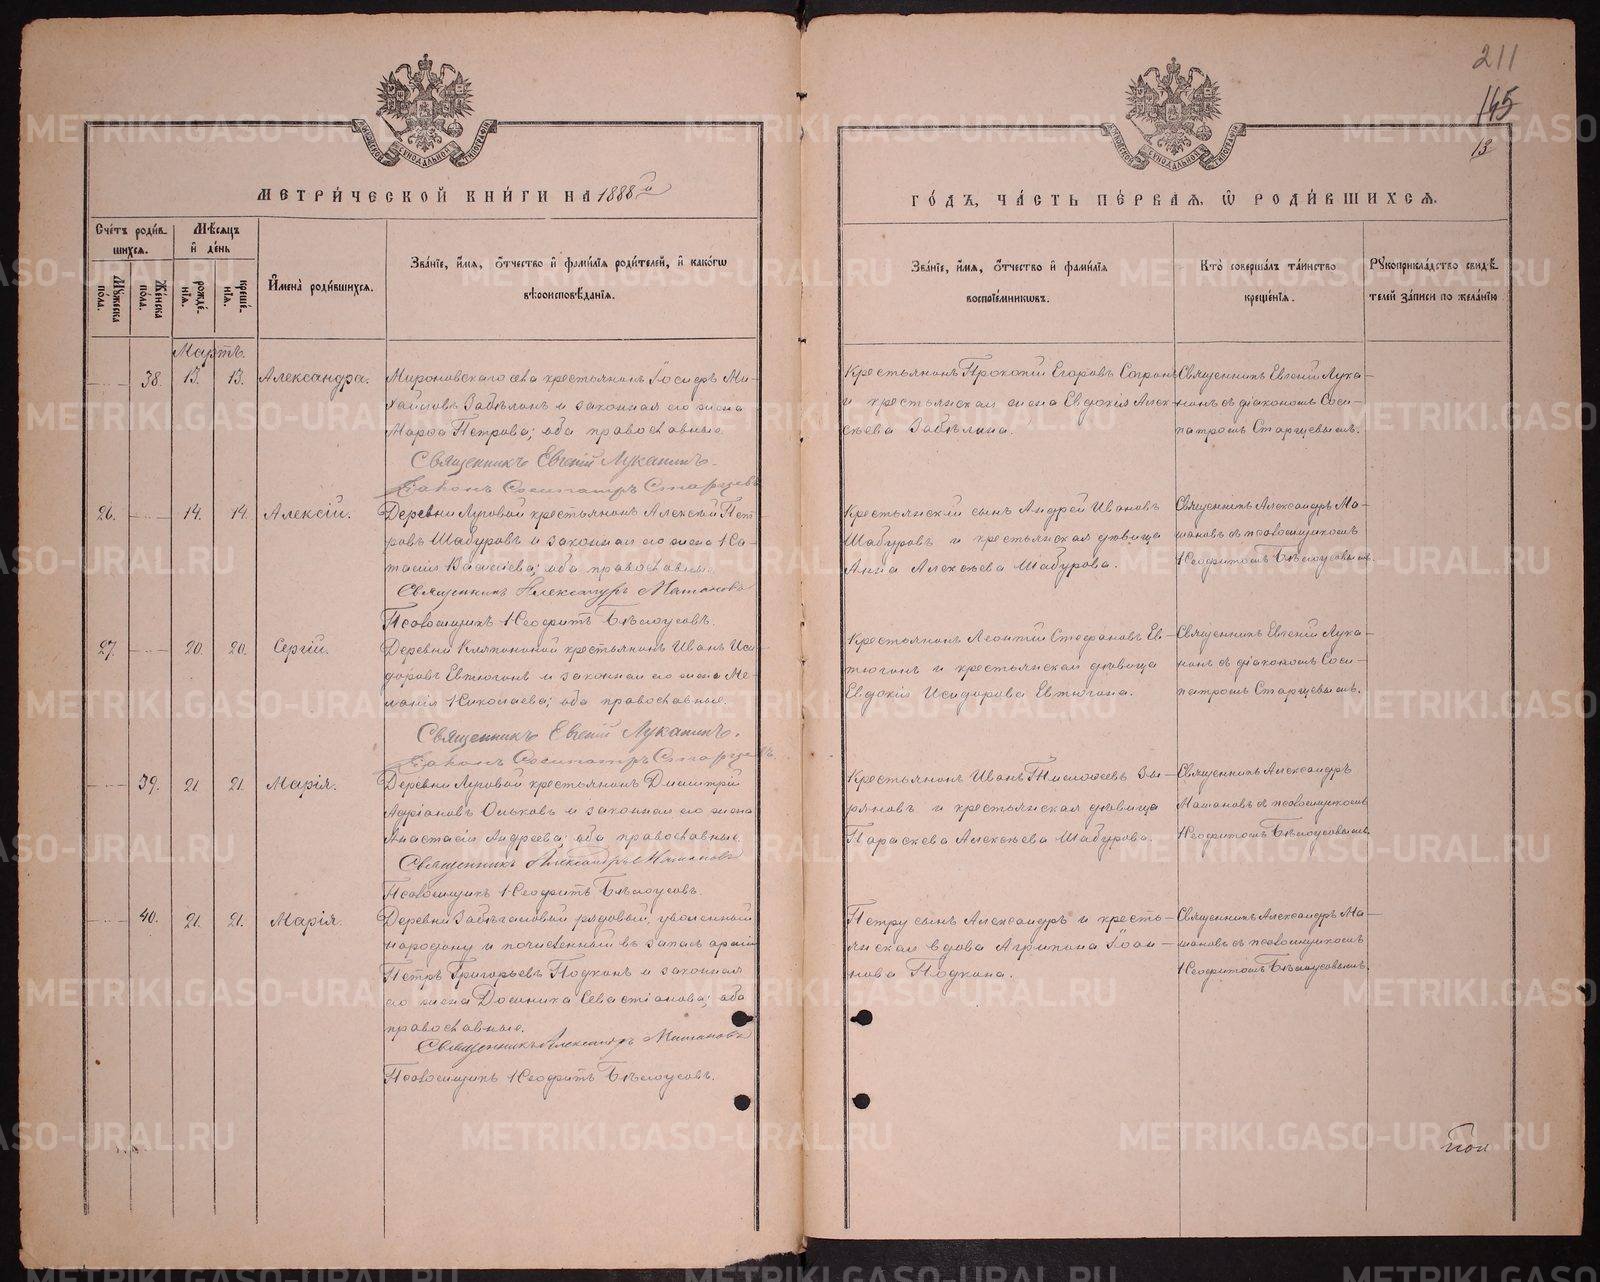 211
145
13
МЕТРИ́ЧЕСКОЙ КНИ́ГИ НА 1888й
ГО́ДЪ, ЧА́СТЬ ПЕ́РВАЯ, Ѽ РОДИ́ВШИХСЯ.
Сче́тъ роди́в-
шихся.
Мѣсяцъ
и҆ де́нь
Мꙋжеска
по́ла.
Же́нска
по́ла.
рожде́-
нїѧ.
креще́-
нїѧ.
И҆мена̀ роди́вшихся.
Зва́нїе, и҆́мя, ѻ҆́тчество и҆ фами́лїя роди́телей, и҆ како́гѡ
вѣроисповѣ́данїя.
Зва́нїе, и҆́мя, ѻ҆́тчество и҆ фами́лїя
воспрїе́мникѡвъ.
Кто̀ соверша́лъ та́инство
креще́нїя.
Рꙋкоприкла́дство свидѣ́-
телей за́писи по жела́нїю
Мартъ.
38. 13. 13. Александра.
Мироновскаго села крестьянинъ Іосифъ Ми-
хайловъ Забѣлинъ и законная его жена
Марѳа Петрова; оба православные.
Священникъ Евгеній Луканинъ.
Діаконъ Сосипатръ Старцевъ
Крестьянинъ Прокопій Егоровъ
и крестьянская жена Евдокія Алек-
сѣева Забѣлина.
Священникъ Евгеній Лука-
нинъ съ діакономъ Соси-
патромъ Старцевымъ.
26. 14. 14. Алексій.
Деревни Луговой крестьянинъ Алексѣй Пет-
ровъ Шабуровъ и законная его жена На-
талія Васильева; оба православные.
Священникъ Александръ
Псаломщикъ Неофитъ Бѣлоусовъ.
Крестьянскій сынъ Андрей Ивановъ
Шабуровъ и крестьянская дѣвица
Анна Алексѣева Шабурова.
Священникъ Александръ
съ псаломщикомъ
Неофитомъ Бѣлоусовымъ.
27. 20. 20. Сергій.
Деревни крестьянинъ Иванъ Иси-
доровъ Евтюгинъ и законная его жена Ме-
ланія Николаева; оба православные.
Священникъ Евгеній Луканинъ.
Діаконъ Сосипатръ Старцевъ.
Крестьянинъ Леонтій Стефановъ Ев-
тюгинъ и крестьянская дѣвица
Евдокія Исидорова Евтюгина.
Священникъ Евгеній Лука-
нинъ съ діакономъ Соси-
патромъ Старцевымъ.
39. 21. 21. Марія.
Деревни Луговой крестьянинъ Димитрій
Адріановъ Ольковъ и законная его жена
Анастасія Андреева; оба православные.
Священникъ Александръ
Псаломщикъ Неофитъ Бѣлоусовъ.
Крестьянинъ Иванъ Тимоѳеевъ Зы-
ряновъ и крестьянская дѣвица
Параскева Алексѣева Шабурова.
Священникъ Александръ
съ псаломщикомъ
Неофитомъ Бѣлоусовымъ.
40. 21. 21. Марія.
Деревни рядовый, уволенный
на родину и почисленный въ запасъ арміи
Петръ Григорьевъ Подкинъ и законная
его жена Домника Севастіанова; оба
православные.
Священникъ Александръ
Псаломщикъ Неофитъ Бѣлоусовъ.
Петру сынъ Александръ и кресть-
янская вдова Агрипина Іоан-
нова Подкина.
Священникъ Александръ
съ псаломщикомъ
Неофитомъ Бѣлоусовымъ.